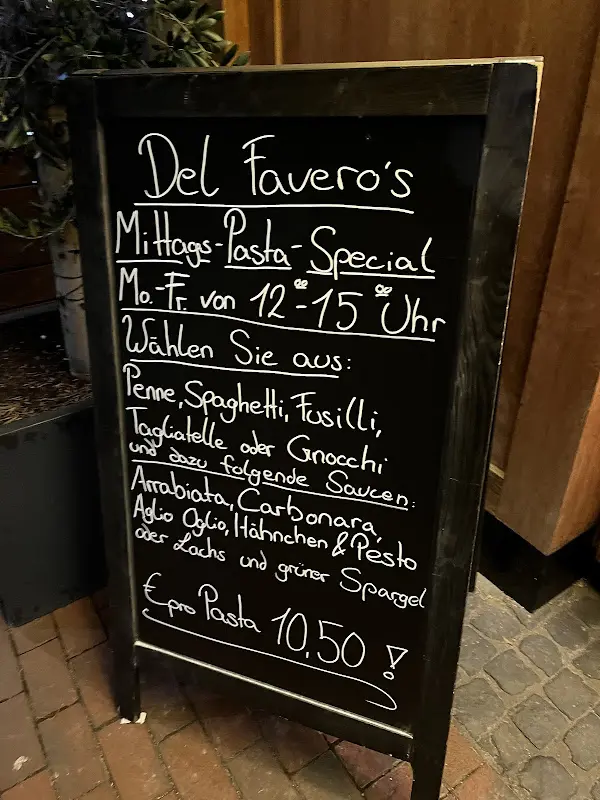 Del Favero's
Mittags-Pasta-Special
Mo.-Fr. von 12⁰⁰-15⁰⁰ Uhr
Wählen Sie aus:
Penne, Spaghetti, Fusilli,
Tagliatelle oder Gnocchi
und dazu folgende Saucen:
Arrabiata, Carbonara,
Aglio Oglio, Hähnchen & Pesto
oder Lachs und grüner Spargel
€ pro Pasta 10,50 !